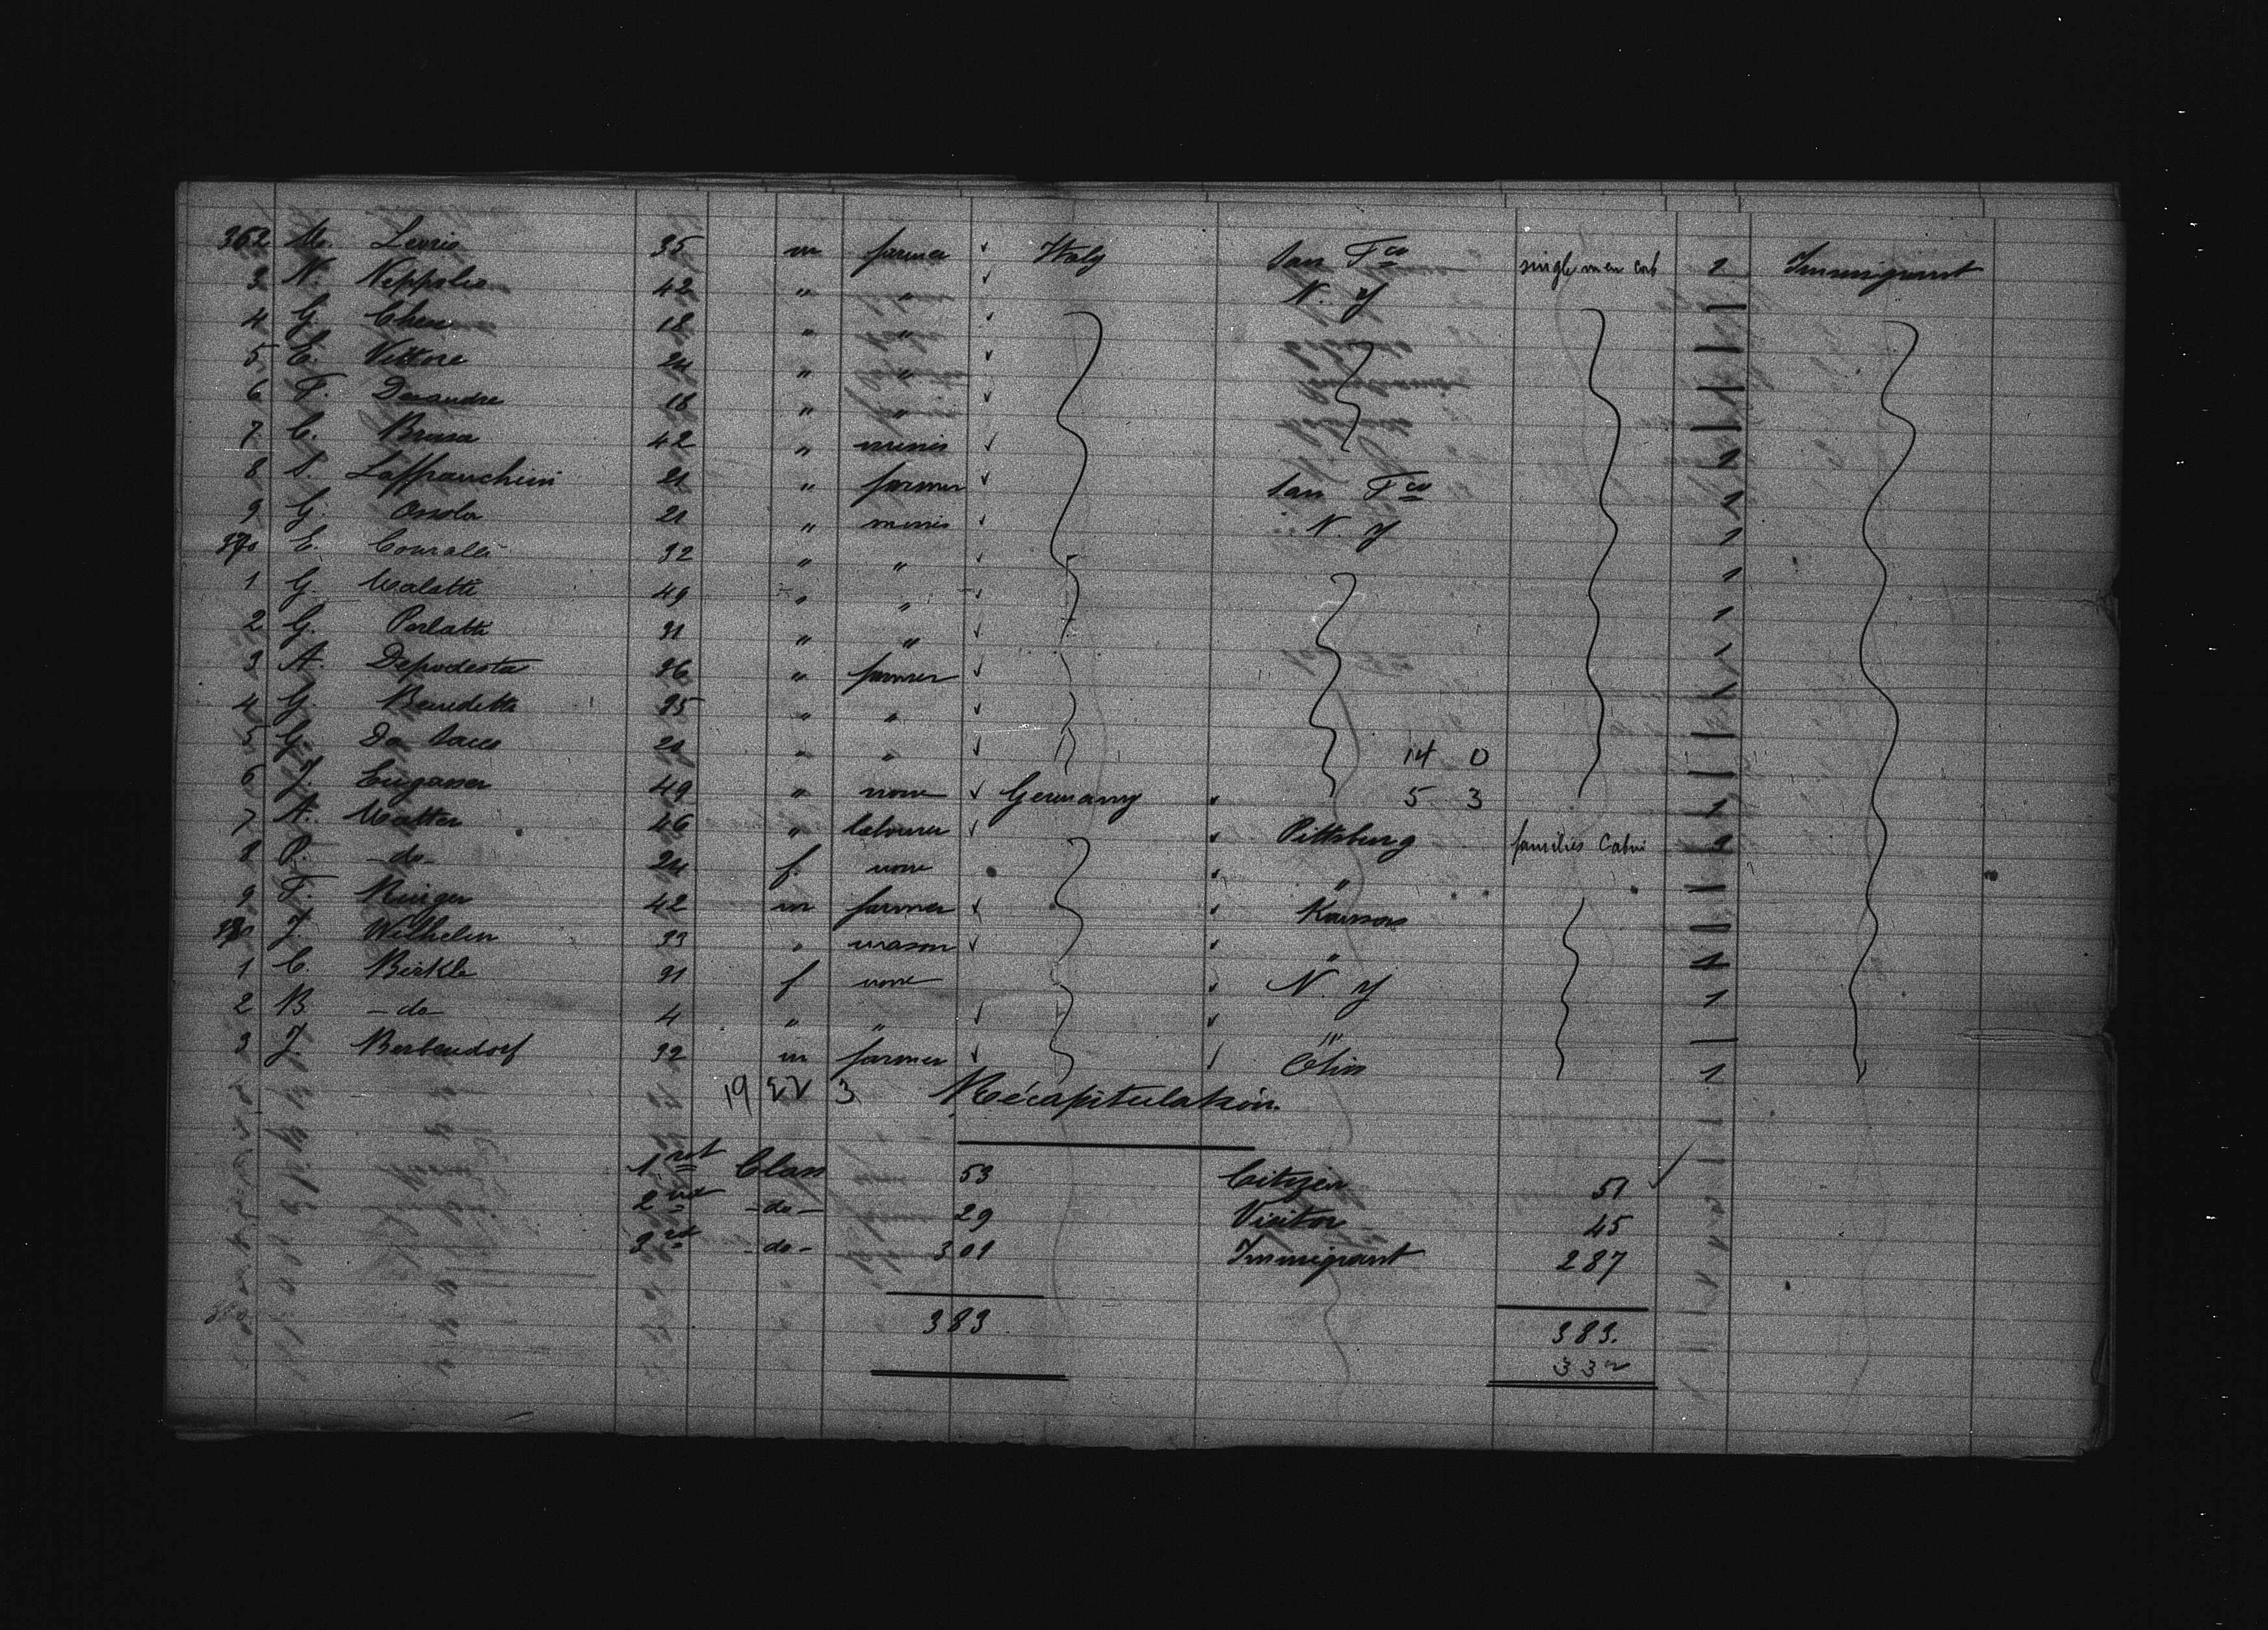 362 M. Lerrio 35 m farmer ✓ Italy San Fco single men cab 1 Immigrant
3 N. Neppolio 42 " " ✓ N. Y 1
4 G. Chew 18 " " ✓ 1
5 E. Vittore 24 " " ✓ 1
6 F. Deandre 18 " " ✓ 1
7 C. Brasa 42 " miner ✓ 1
8 S. Laffranchini 21 " farmer ✓ San Fco 1
9 G. Ossola 21 " miner ✓ N. Y 1
370 E. 32 " " ✓ 1
1 G. Malatti 49 " " ✓ 1
2 G. Perlatti 31 " " ✓ 1
3 A. Depodesta 36 " farmer ✓ 1
4 G. Benedetti 35 " " ✓ 1
5 G. Da Sacco 21 " " ✓ 14 0 1
6 J. 49 " none ✓ Germany ✓ 5 3 1
7 A. Matter 46 " labourer ✓ ✓ Pittsburg families Cabin 1
8 P. -do- 24 f none ✓ " 1
9 F. Ruiger 42 m farmer ✓ ✓ Kansas 1
380 J. Wilhelm 33 " mason ✓ ✓ " 1
1 C. Birkle 31 f none ✓ N. Y 1
2 B -do- 4 " " ✓ ✓ " 1
3 J. Berbendorf 32 m farmer ✓ ✓ Ohio 1
19 22 3 Récapitulation.
1rst Class 53 Citizen 51 ✓
2nd -do- 29 Visitor 45
3rd -do- 301 Immigrant 287
383 383.
332